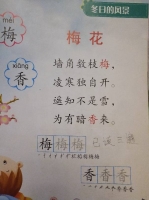 冬日的风景
méi
梅
梅花
墙角数枝梅，
凌寒独自开。
xiāng
香
遥知不是雪，
为有暗香来。
梅梅梅
香香香